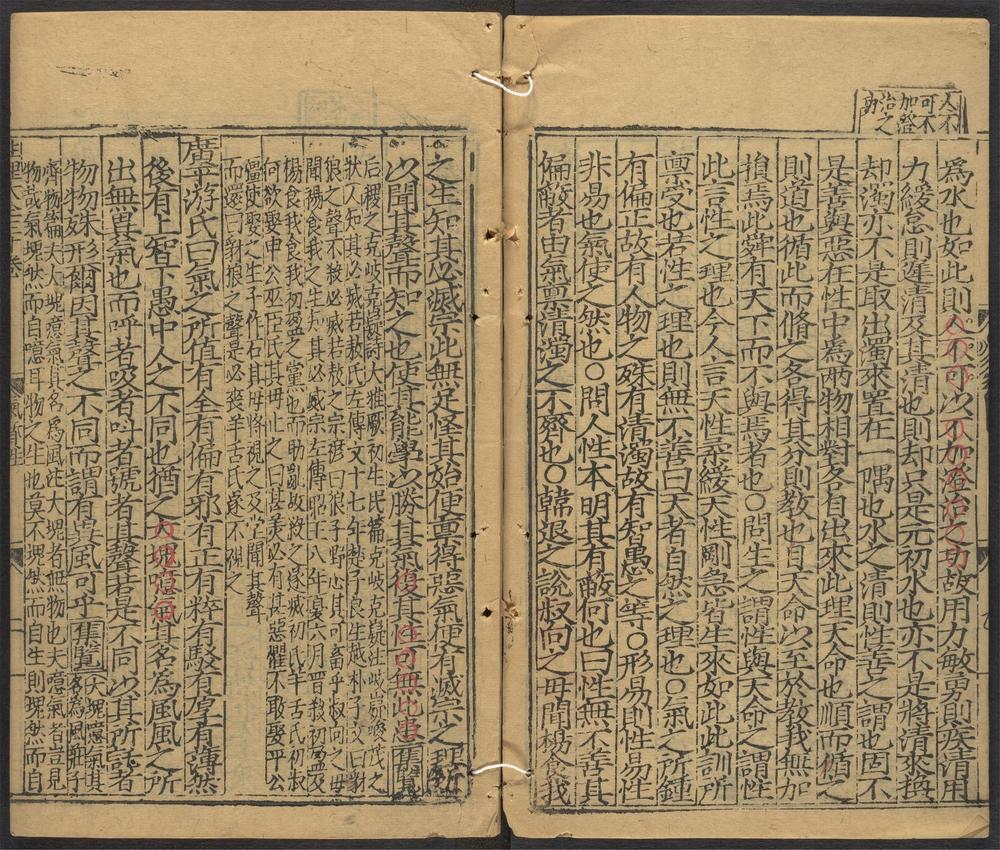 人不
可不
加澄
治之
功
爲水也如此則人不可以不加澄治之功故用力敏勇則疾清用
力緩怠則遲清及其清也則却只是元初水也亦不是將清來換
却濁亦不是取出濁來置在一隅也水之清則性善之謂也固不
是善與惡在性中爲兩物相對各自出來此理天命也順而循之
則道也循此而脩之各得其分則教也自天命以至於教我無加
損焉此舜有天下而不與焉者也○問生之謂性與天命之謂性
此言性之理也今人言天性柔緩天性剛急皆生來如此此訓所
禀受也若性之理也則無不善曰天者自然之理也○氣之所鍾
有偏正故有人物之殊有清濁故有智愚之等○形易則性易性
非易也氣使之然也○問人性本明其有蔽何也曰性無不善其
偏蔽者由氣禀清濁之不齊也○韓退之說叔向之母聞楊食我
之生知其必滅宗此無足怪其始便禀得惡氣便有滅宗之理所
以聞其聲而知之也使其能學以勝其氣復其性可無此患集覽
后稷之克岐克嶷詩大雅厥初生民篇克岐克嶷註岐嶷峻茂之
狀人知其必滅若敖氏左傳文十七年楚子良生越椒子文曰豺
狼之聲不殺必滅若敖之宗諺曰狼子野心其可畜乎叔向之母
聞楊食我之生知其必滅宗左傳昭二八年夏六月晋殺祁盈及
楊食我食我祁盈之黨也而助亂故殺之遂滅祁氏羊舌氏初叔
向欲娶申公巫臣氏其母止之曰甚美必有甚惡懼不敢娶平公
僵使娶之生子伯石其母將視之及堂聞其聲
而還曰豺狼之聲是必喪羊舌氏遂不視之
廣平游氏曰氣之所值有全有偏有邪有正有粹有駁有厚有薄然
後有上智下愚中人之不同也猶之大塊噫氣其名爲風風之所
出無異氣也而呼者吸者叫者號者其聲若是不同以其所託者
物物殊形爾因其聲之不同而謂有異風可乎集覽大塊噫氣其名為風莊子
齊物論大人塊噫氣其名爲風註大塊者無物也夫噫氣者豈見
物哉氣塊然而自噫耳物之生也莫不塊然而自生則塊然而自